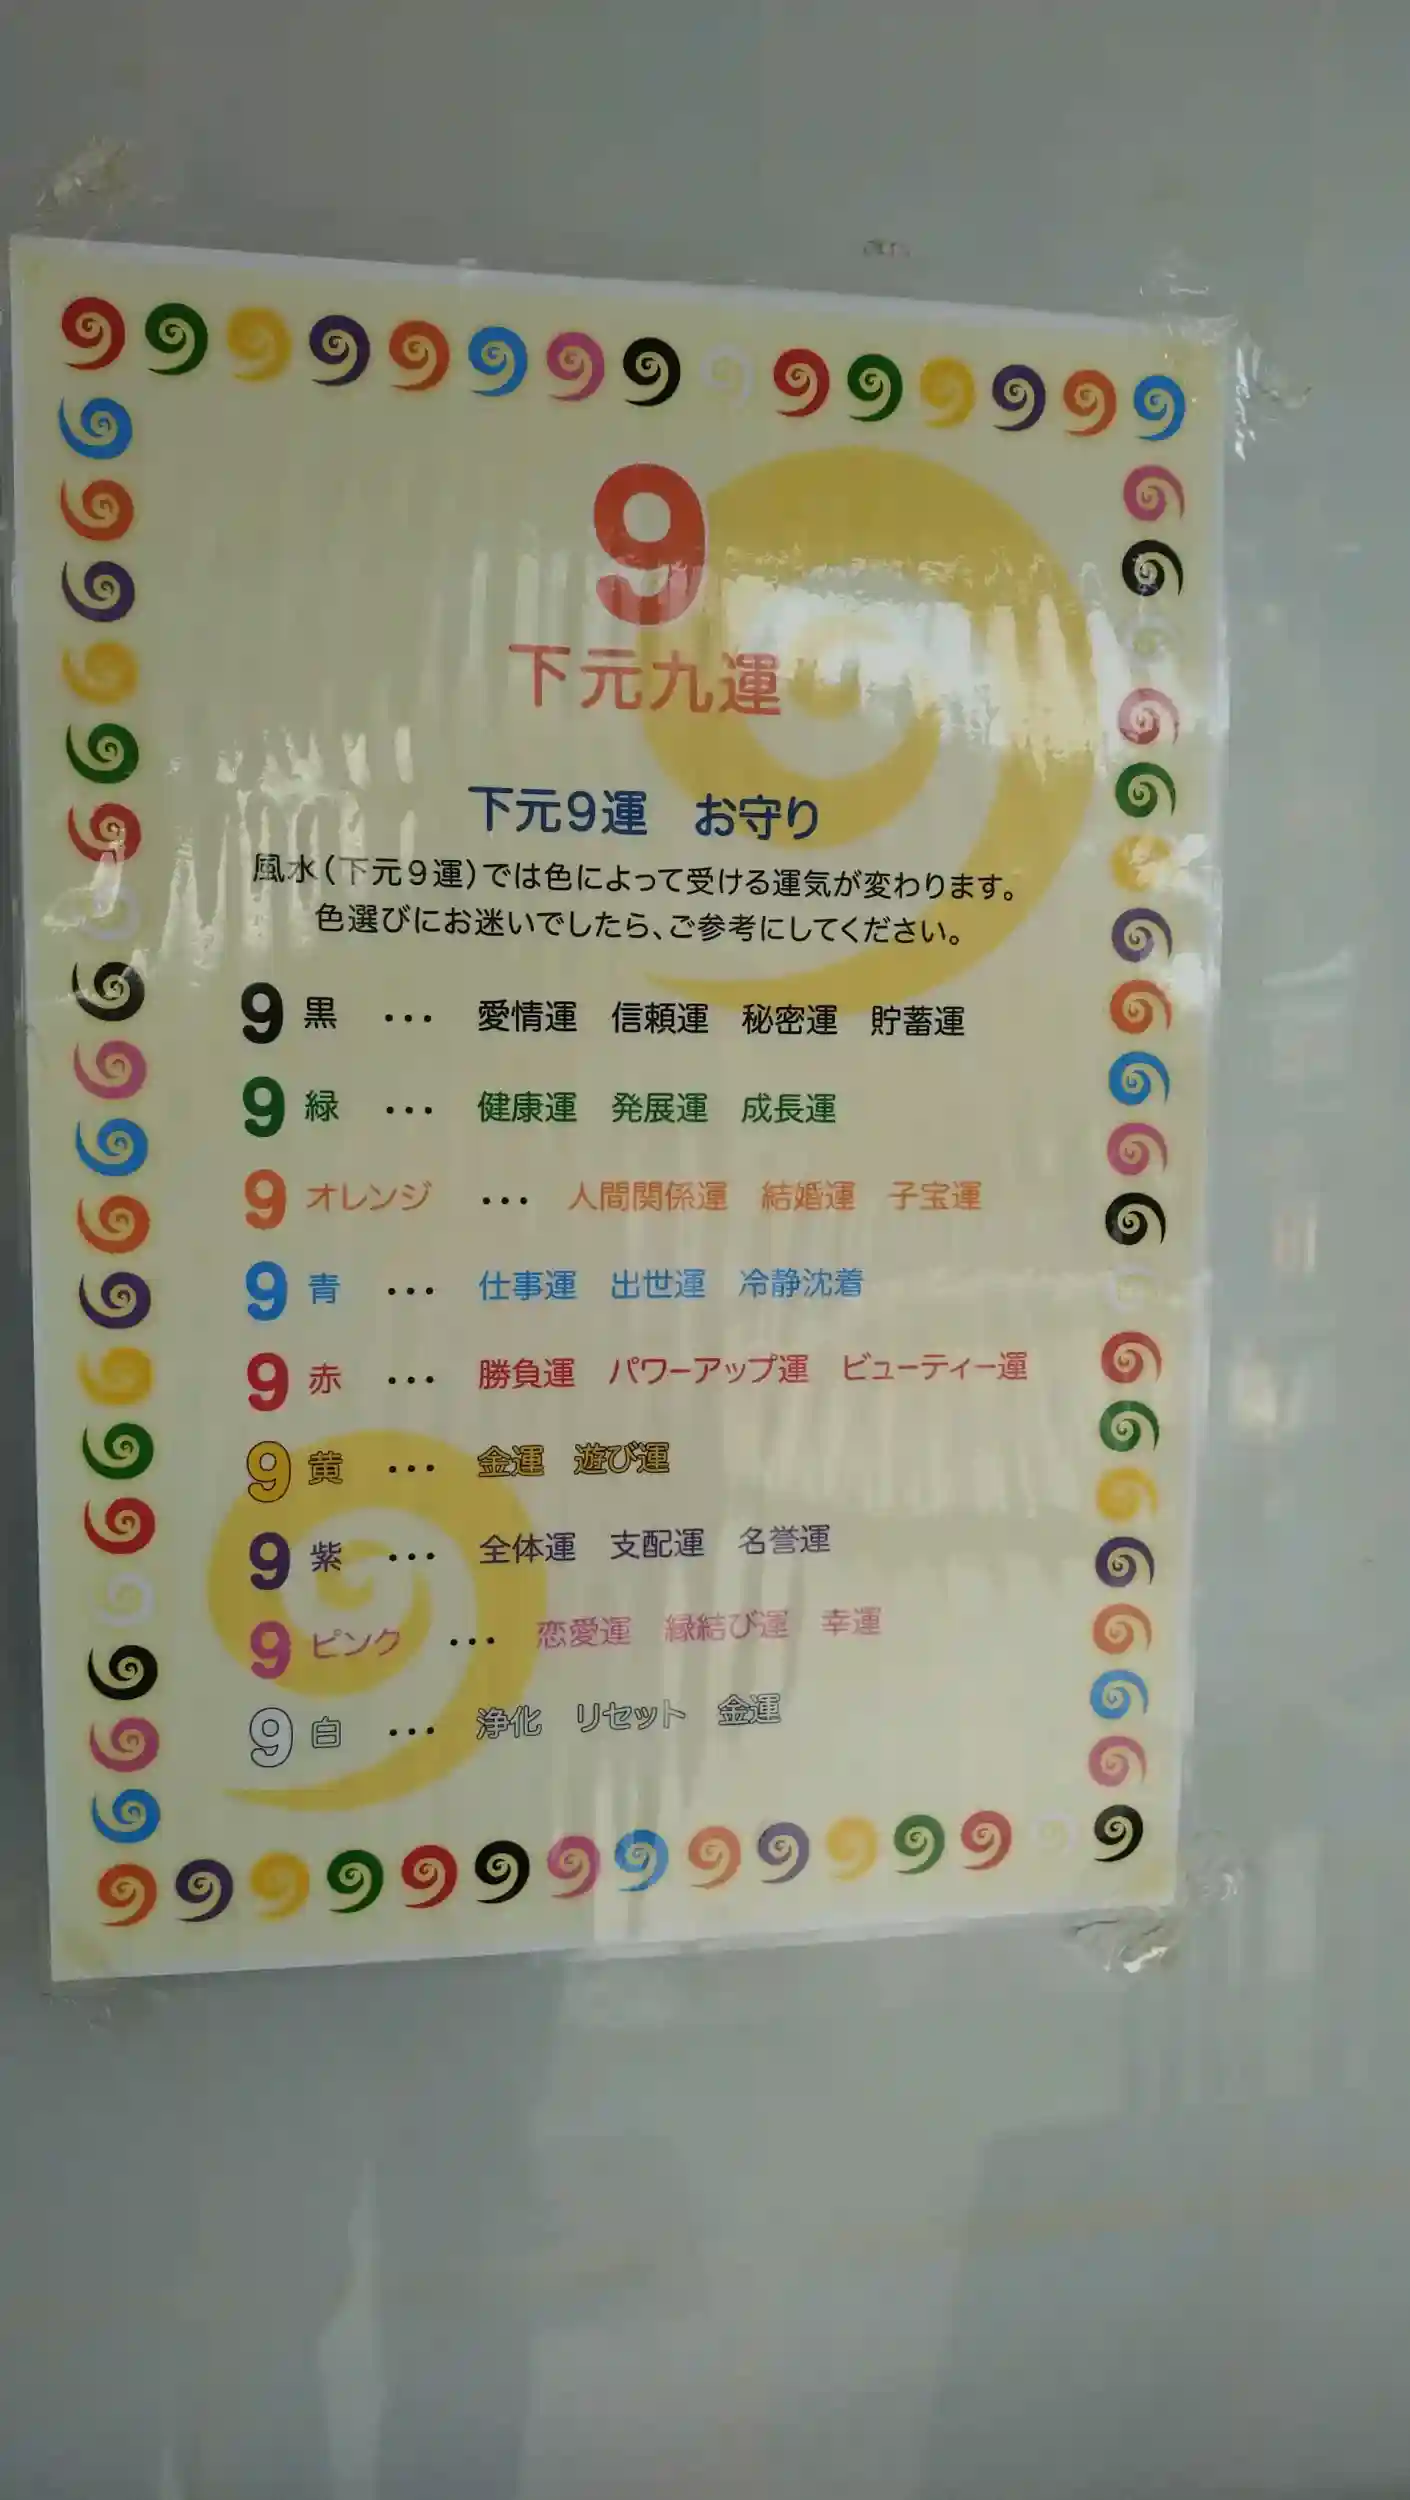 9
下元九運
下元9運　お守り
風水(下元9運)では色によって受ける運気が変わります。
色選びにお迷いでしたら、ご参考にしてください。
9 黒 ･･･ 愛情運　信頼運　秘密運　貯蓄運
9 緑 ･･･ 健康運　発展運　成長運
9 オレンジ ･･･ 人間関係運　結婚運　子宝運
9 青 ･･･ 仕事運　出世運　冷静沈着
9 赤 ･･･ 勝負運　パワーアップ運　ビューティー運
9 黄 ･･･ 金運　遊び運
9 紫 ･･･ 全体運　支配運　名誉運
9 ピンク ･･･ 恋愛運　縁結び運　幸運
9 白 ･･･ 浄化　リセット　金運